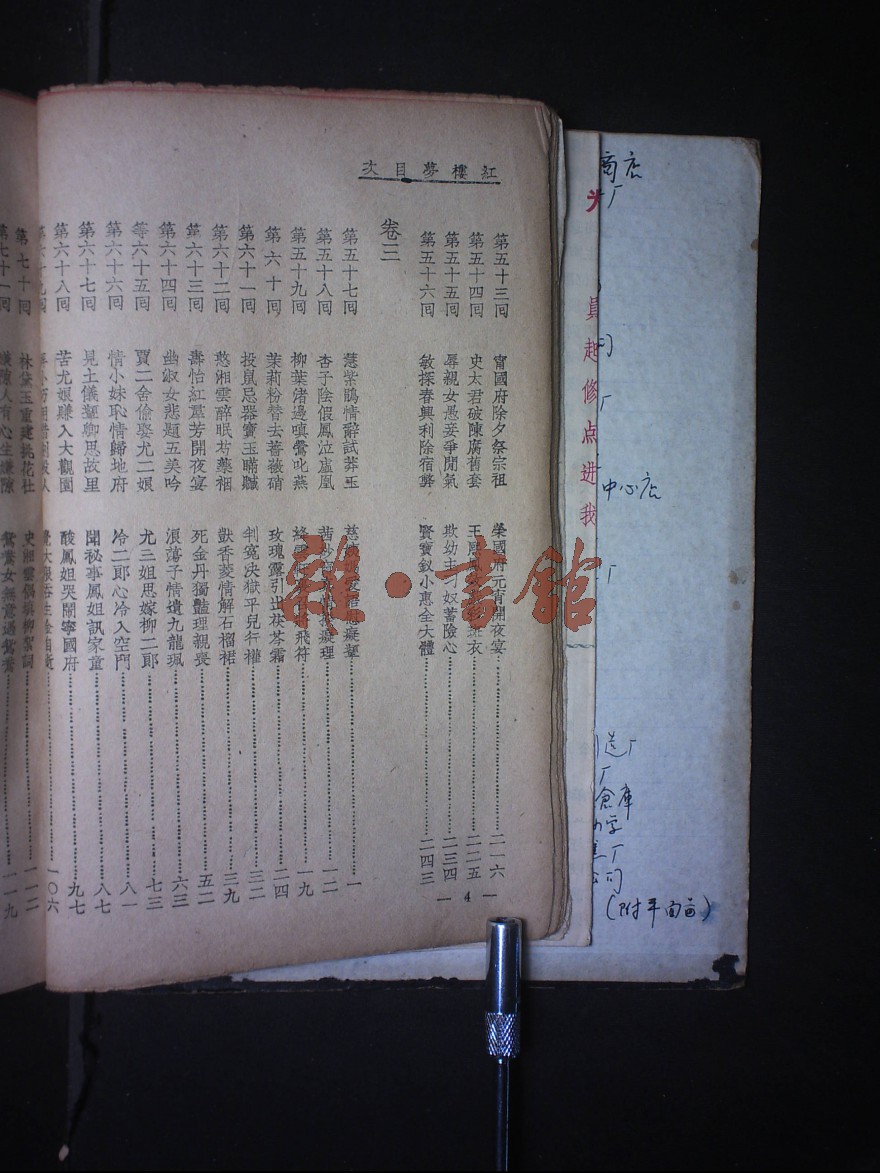 紅樓夢目次
第五十三回 甯國府除夕祭宗祖 榮國府元宵開夜宴 二一六
第五十四回 史太君破陳腐舊套 王 衣 二二五
第五十五回 辱親女愚妾爭閒氣 欺幼主刁奴蓄險心 二三四
第五十六回 敏探春興利除宿弊 賢寶釵小惠全大體 二四三
卷三
第五十七回 慧紫鵑情辭試莽玉 慈 癡顰 一
第五十八回 杏子陰假鳳泣虛凰 茜 癡理 一二
第五十九回 柳葉渚邊嗔鶯叱燕 絳 飛符 一九
第六十回 茉莉粉替去薔薇硝 玫瑰露引出茯苓霜 二四
第六十一回 投鼠忌器寶玉瞞贓 判冤決獄平兒行權 三二
第六十二回 憨湘雲醉眠芍藥裀 獃香菱情解石榴裙 三九
第六十三回 壽怡紅羣芳開夜宴 死金丹獨豔理親喪 五二
第六十四回 幽淑女悲題五美吟 浪蕩子情遺九龍珮 六三
第六十五回 賈二舍偷娶尤二娘 尤三姐思嫁柳二郎 七三
第六十六回 情小妹恥情歸地府 冷二郎心冷入空門 八一
第六十七回 見土儀顰卿思故里 聞秘事鳳姐訊家童 八七
第六十八回 苦尤娘賺入大觀園 酸鳳姐哭鬧寧國府 九七
第六十九回 一〇六
第七十回 林黛玉重建桃花社 史湘雲偶填柳絮詞 一一二
第七十一回 嫌隙人有心生嫌隙 鴛鴦女無意遇鴛鴦 一一九
— 4 —
雜·書館
員起修点进我
商店
厂
中心店
造厂
倉庫
厂
公司
(附平面